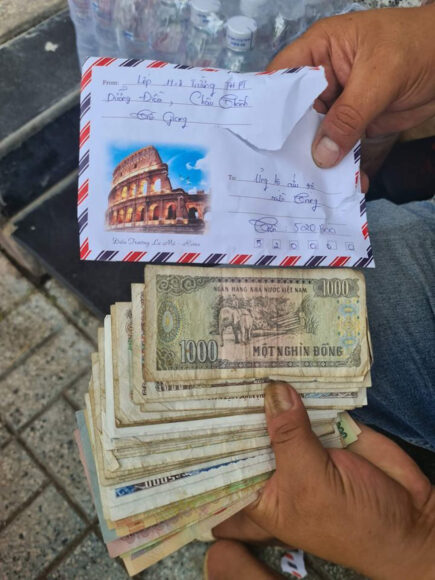 From: Lớp 11.1 Trường THPT
Dưỡng Điềm, Châu Thành
Tiền Giang
To: Ủng hộ
miền
Tiền 520.000
5 2 0 0 0 0
Đấu Trường La Mã - Rome
NGÂN HÀNG NHÀ NƯỚC VIỆT NAM 1000
1000 MỘT NGHÌN ĐỒNG
5000